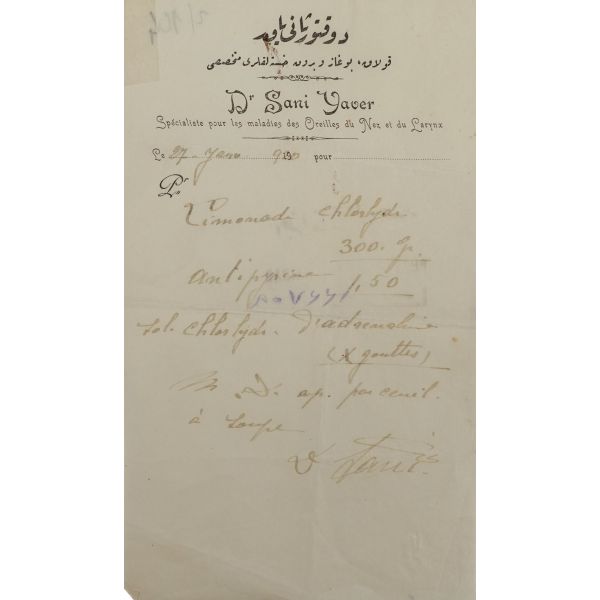 دوقتور ثانی یاور
قولاق، بوغاز و برون خسته لقلری متخصصی
Dr Sani Yaver
Spécialiste pour les maladies des Oreilles du Nez et du Larynx
Le 27 - Janv 190 pour
Pr
Limonade chlorhydr
300. gr.
antipyrine 1,50
sol. chlorhydr. d'adrenaline
(X gouttes)
D. ap. par cuil.
à soupe
Dr Sani